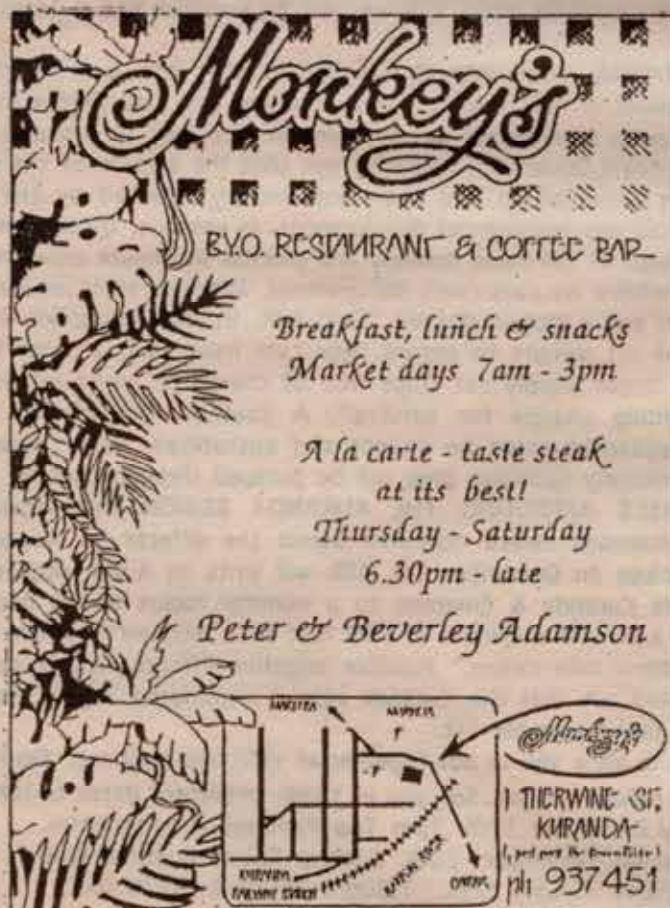 Monkey's
B.Y.O. RESTAURANT & COFFEE BAR
Breakfast, lunch & snacks
Market days 7am - 3pm
A la carte - taste steak
at its best!
Thursday - Saturday
6.30pm - late
Peter & Beverley Adamson
MAREEBA
KURANDA
RAILWAY STATION
BARRON RIVER
CAIRNS
Monkey's
1 THERWINE ST,
KURANDA
ph 937451